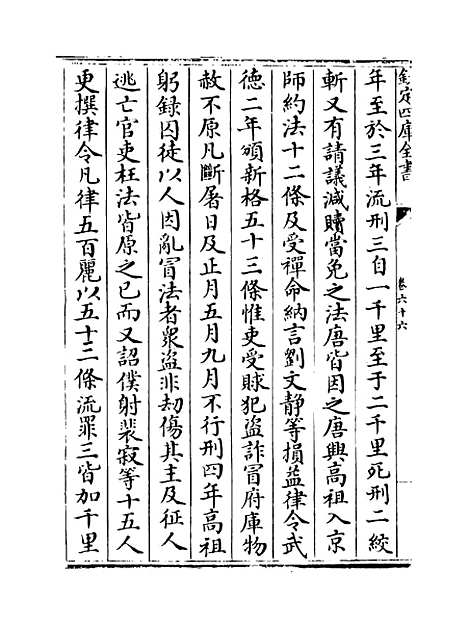 欽定四庫全書
卷六十六
年至於三年流刑三自一千里至于二千里死刑二絞
斬又有請議減贖當免之法唐皆因之唐興高祖入京
師約法十二條及受禪命納言劉文静等損益律令武
德二年頒新格五十三條惟吏受賕犯盜詐冒府庫物
赦不原凡斷屠日及正月五月九月不行刑四年高祖
躬録囚徒以人因亂冒法者衆盜非刧傷其主及征人
逃亡官吏枉法皆原之已而又詔僕射裴寂等十五人
更撰律令凡律五百麗以五十三條流罪三皆加千里